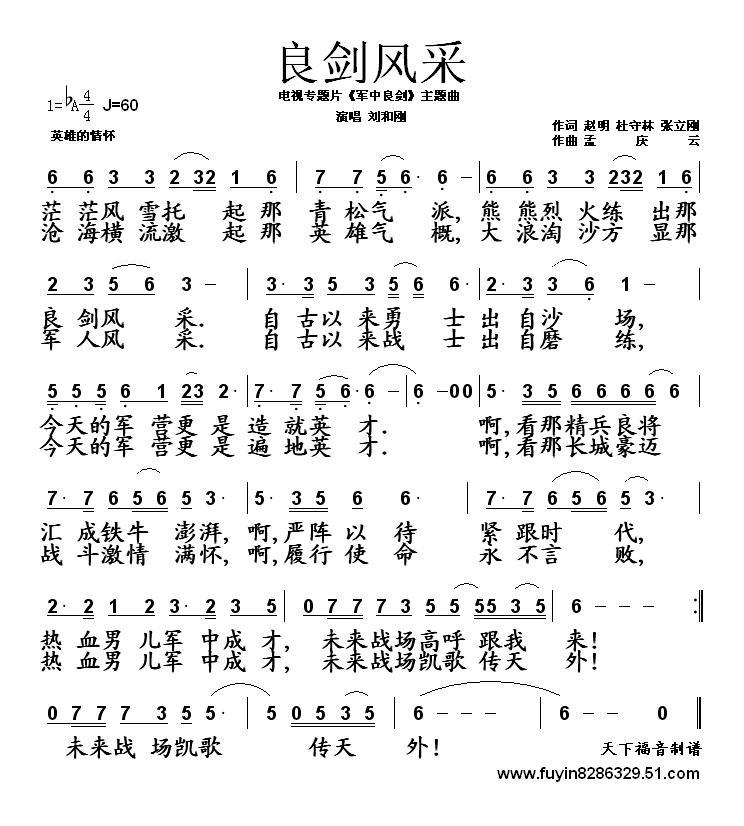 良剑风采
电视专题片《军中良剑》主题曲
1=♭A 4/4 J=60
演唱 刘和刚
作词 赵明 杜守林 张立刚
英雄的情怀
作曲 孟 庆 云
6 6 3 3 2 32 1 6 | 7 7 5 6· 6 - | 6 6 3 3 232 1 6 |
茫 茫风 雪托 起那 青 松气 派, 熊 熊烈 火练 出那
沧 海横 流激 起那 英 雄气 概, 大 浪淘 沙方 显那
2 3 5 6 3 - | 3· 3 5 3 5 6 6· 6 | 2· 3 3 6 1 - |
良 剑风 采. 自 古以 来勇 士 出 自沙 场,
军 人风 采. 自 古以 来战 士 出 自磨 练,
5 5 5 6 1 23 2· | 7· 7 5 6· 6 - | 6 - 0 0 | 5· 3 5 6 6 6 6 6 |
今天的军 营更 是 造 就英 才. 啊,看那精兵良将
今天的军 营更 是 遍 地英 才. 啊,看那长城豪迈
7· 7 6 5 6 5 3· | 5· 3 5 6 6· | 7· 7 6 5 6 5 3· |
汇 成铁牛 澎湃, 啊,严阵 以 待 紧 跟时 代,
战 斗激情 满怀, 啊,履行 使 命 永 不言 败,
2· 2 1 2 3· 2 3 5 | 0 7 7 7 3 5 5 55 3 5 | 6 - - - :‖
热 血男 儿军 中成 才, 未来战场高呼 跟我 来!
热 血男 儿军 中成 才, 未来战场凯歌 传天 外!
0 7 7 7 3 5 5· | 5 0 5 3 5 | 6 - - - | 6 - - 0 ‖
未来战 场凯歌 传天 外!
天下福音制谱
www.fuyin8286329.51.com